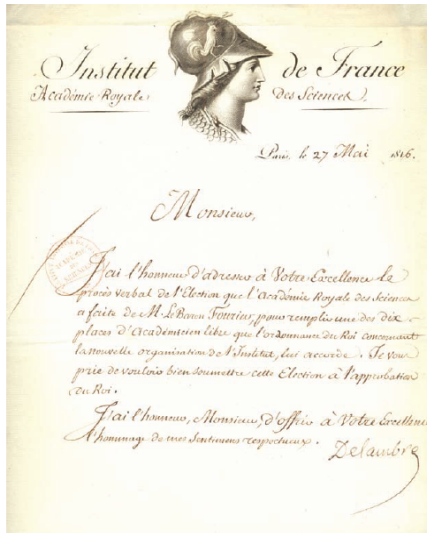 Institut de France
Académie Royale des Sciences.
Paris, le 27 Mai 1816.
Monsieur,
J'ai l'honneur d'adresser à Votre Excellence le
procès verbal de l'Election que l'Académie Royale des Sciences
a faite de M. Le Baron Fourier, pour remplir une des dix
places d'Académicien libre que l'ordonnance du Roi concernant
la nouvelle organisation de l'Institut, lui accorde. Je vous
prie de vouloir bien soumettre cette Election à l'approbation
du Roi.
J'ai l'honneur, Monsieur, d'offrir à Votre Excellence
l'hommage de mes sentimens respectueux.
Delambre